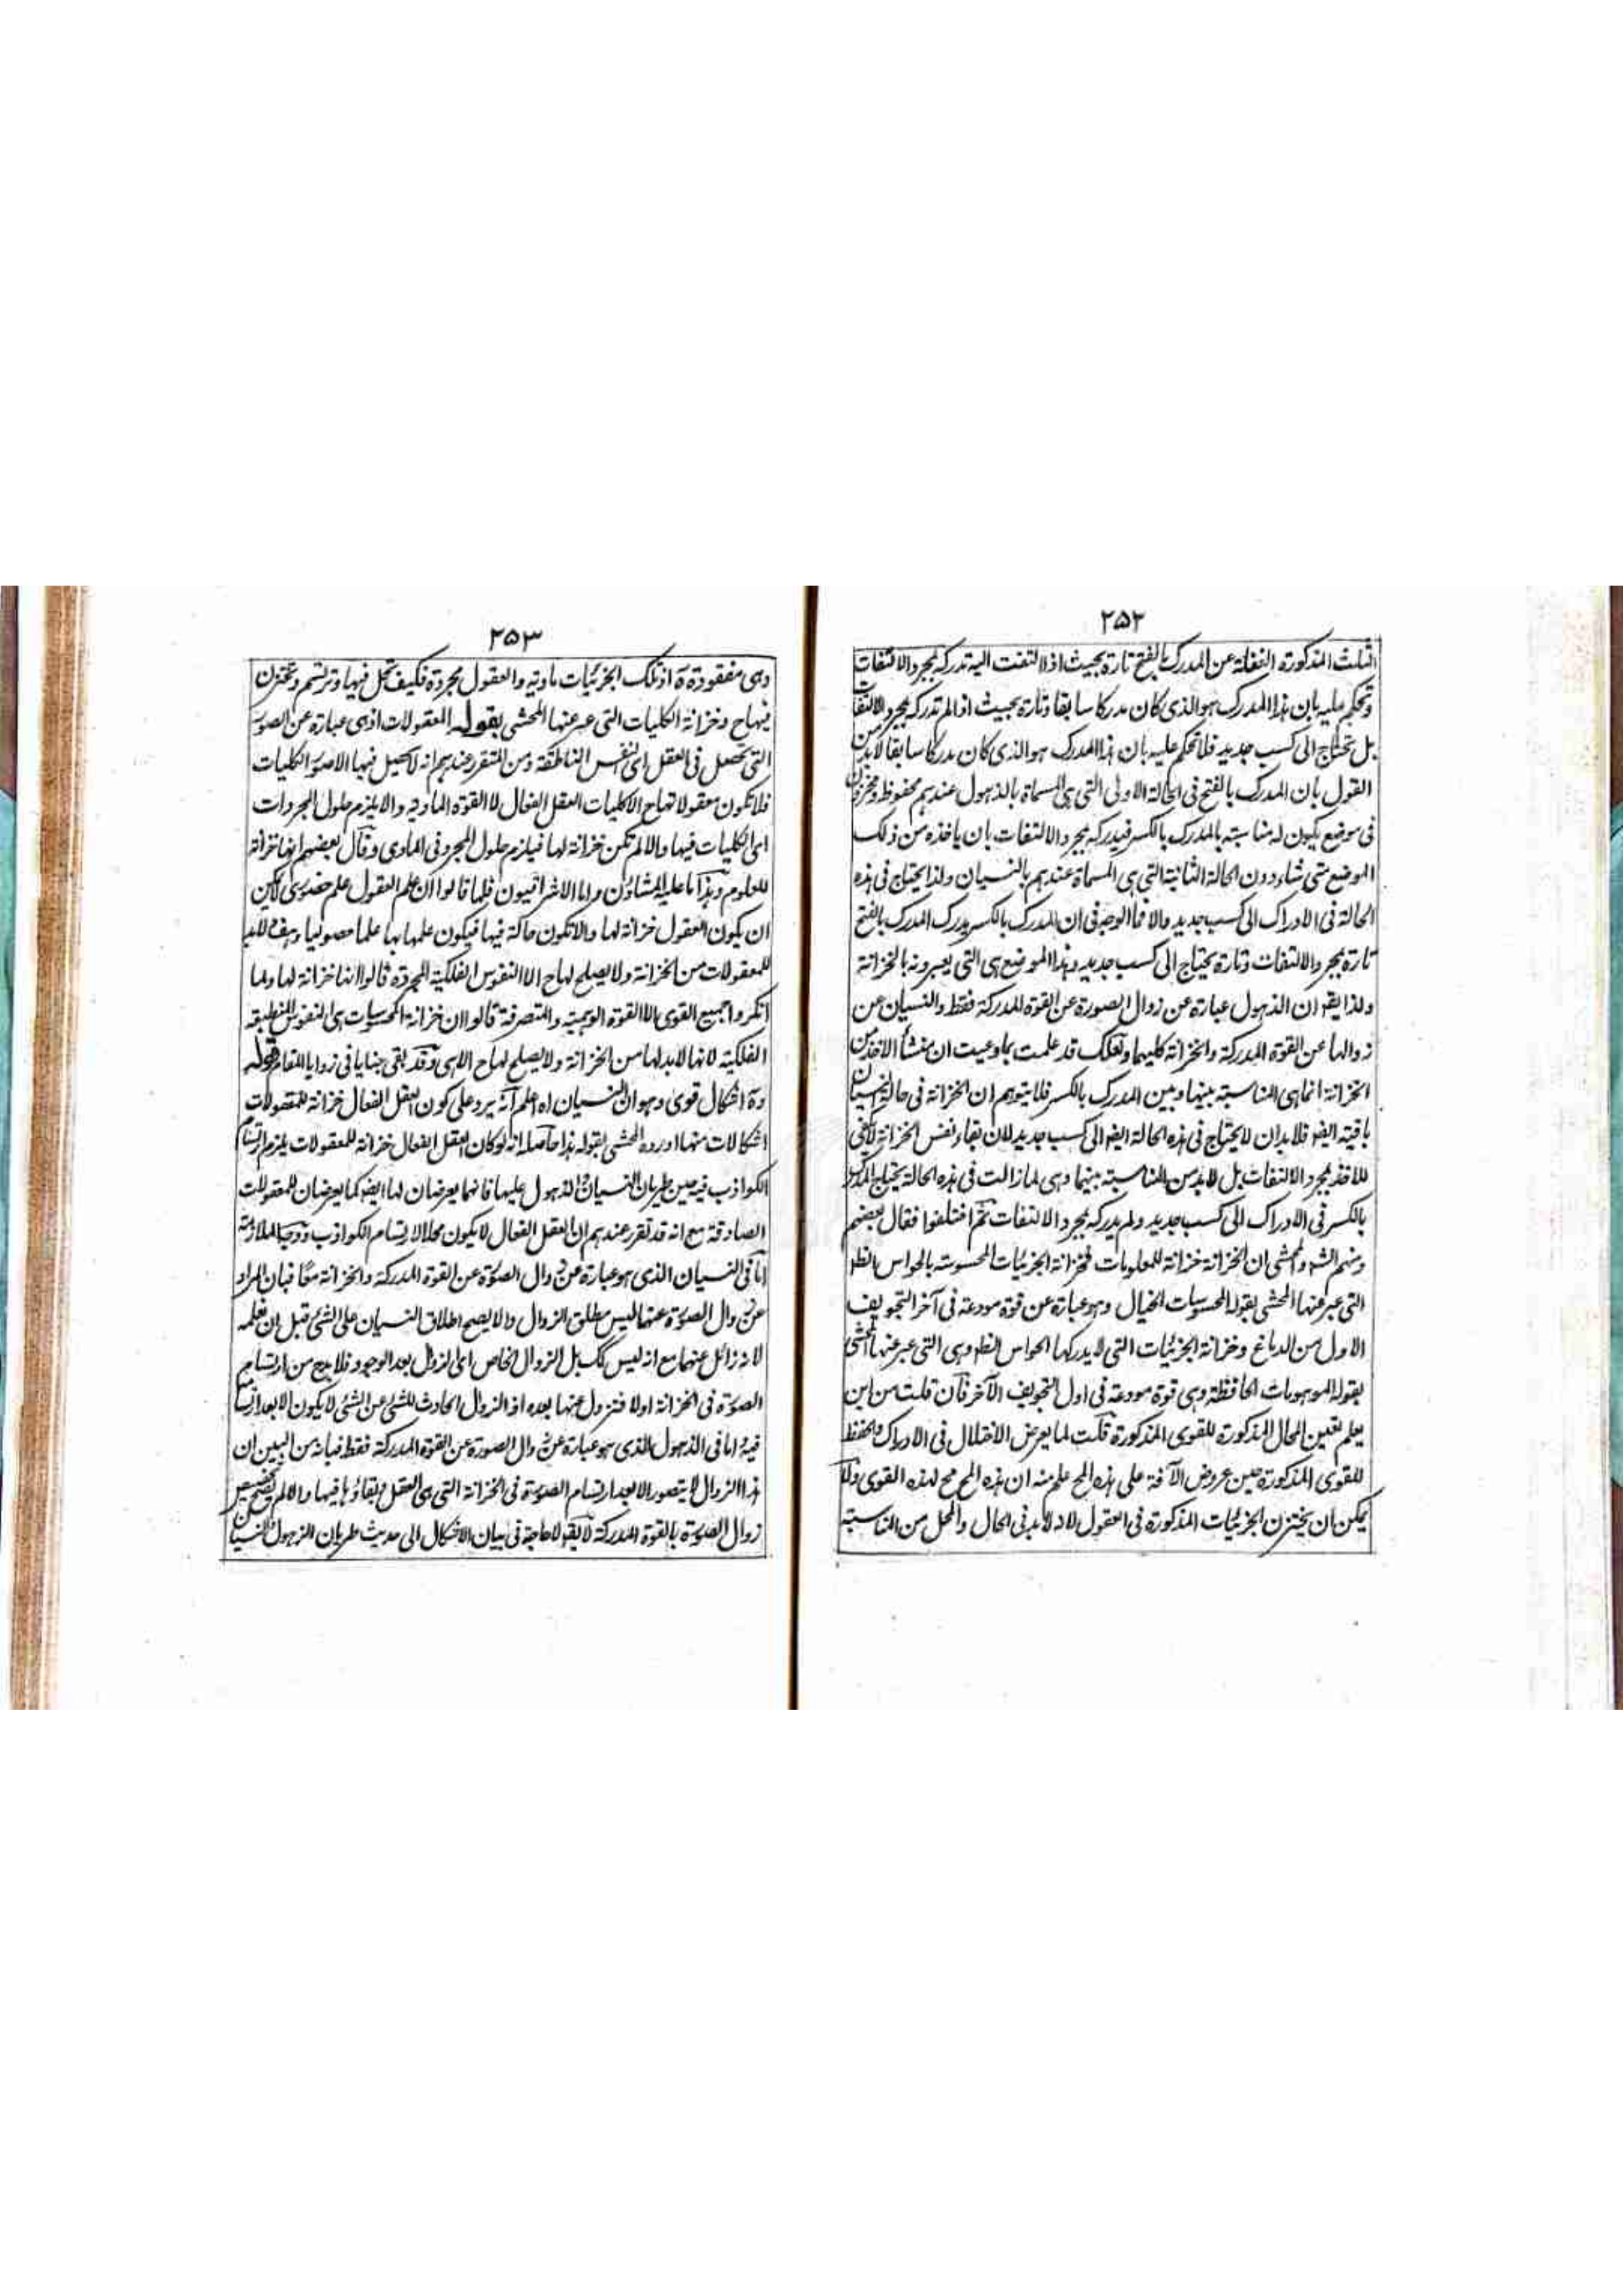 ٢٥٢
الثلث المذكورة الغفلة عن المدرك بالفتح تارة بحيث اذا التفت اليه تدركه بمجرد الالتفات
وتحكم عليه بان هذا المدرك هو الذى كان مدركا سابقا وتارة بحيث اذا لم تدركه بمجرد الالتفات
بل تحتاج الى كسب جديد فلا تحكم عليه بان هذا المدرك هو الذى كان مدركا سابقا لابد من
القول بان المدرك بالفتح فى الحالة الاولى التى هى المسماة بالذهول عندهم محفوظ ومخزون
فى موضع يكون له مناسبته بالمدرك بالكسر فيدركه بمجرد الالتفات بان ياخذه من ذلك
الموضع متى شاء دون الحالة الثانية التى هى المسماة عندهم بالنسيان ولذا يحتاج فى هذه
الحالة فى الادراك الى كسب جديد والا فما الوجه فى ان المدرك بالكسر يدرك المدرك بالفتح
تارة بمجرد الالتفات وتارة يحتاج الى كسب جديد وهذا الموضع هى التى يعبرونه بالخزانة
ولذا يقو ان الذهول عبارة عن زوال الصورة عن القوة المدركة فقط والنسيان عن
زوالها عن القوة المدركة والخزانة كليهما ولعلك قد علمت بما وعيت ان منشأ الاخذ من
الخزانة انما هى المناسبة بينها وبين المدرك بالكسر فلا يتوهم ان الخزانة فى حالة النسيان
باقية ايضا فلا بد ان لا يحتاج فى هذه الحالة ايضا الى كسب جديد لان بقاء نفس الخزانة لا يكفى
للاخذ بمجرد الالتفات بل لابد من المناسبة بينهما وهى لما زالت فى هذه الحالة يحتاج المدرك
بالكسر فى الادراك الى كسب جديد ولم يدركه بمجرد الالتفات ثم اختلفوا فقال بعضهم
ومنهم الشه والمحشى ان الخزانة خزانة للمعلومات فخزانة الجزئيات المحسوسة بالحواس الظا
التى عبر عنها المحشى بقوله المحسوسات الخيال وهو عبارة عن قوة مودعة فى آخر التجويف
الاول من الدماغ وخزانة الجزئيات التى لا يدركها الحواس الظا وهى التى عبر عنها المحشى
بقوله الموهومات الحافظة وهى قوة مودعة فى اول التجويف الآخر فان قلت من اين
يعلم تعين المحال المذكورة للقوى المذكورة قلت لما يعرض الاختلال فى الادراك والحفظ
للقوى المذكورة حين عروض الآفة على هذه المح علم منه ان هذه المح مح لهذه القوى ولا
يمكن ان يختزن الجزئيات المذكورة فى العقول لانه لابد فى الحال والمحل من المناسبة
٢٥٣
وهى مفقودة ة اذ تلك الجزئيات مادية والعقول مجردة فكيف تحل فيها وترتسم وتختزن
فيها ح وخزانة الكليات التى عبر عنها المحشى بقوله المعقولات اذ هى عبارة عن الصور
التى تحصل فى العقل اى النفس الناطقة ومن المتقرر عندهم انه لا يحصل فيها الا صور الكليات
فلا تكون معقولاتها ح الا الكليات العقل الفعال لا القوة المادية والا يلزم حلول المجردات
اى الكليات فيها والا لم تكن خزانة لها فيلزم حلول المجرد فى المادى وقال بعضهم انها خزانة
للعلوم وهذا ما عليه المشاؤن واما الاشراقيون فلما قالوا ان علم العقول علم حضورى لا يمكن
ان يكون العقول خزانة لها والا تكون حالة فيها فيكون علمها بها علما حصوليا وهف لابد
للمعقولات من الخزانة ولا يصلح لها ح الا النفوس الفلكية المجردة قالوا انها خزانة لها ولما
انكروا جميع القوى الا القوة الوهمية والمتصرفة قالوا ان خزانة المحسوسات هى النفوس المنطبعة
الفلكية لانها لابد لها من الخزانة ولا يصلح لها ح الا هى وقد بقى خبايا فى زوايا المقام قوله
وة اشكال قوى وهو ان النسيان اه اعلم انه يرد على كون العقل الفعال خزانة للمعقولات
اشكالات منها ما اورده المحشى بقوله هذا حاصله انه لو كان العقل الفعال خزانة للمعقولات يلزم ارتسام
الكواذب فيه حين طريان النسيان والذهول عليها فانهما يعرضان لها ايضا كما يعرضان للمعقولات
الصادقة مع انه قد تقرر عندهم ان العقل الفعال لا يكون محلا لارتسام الكواذب ووجه الملازمة
اما فى النسيان الذى هو عبارة عن زوال الصورة عن القوة المدركة والخزانة معا فبان المراد
عن زوال الصورة عنهما ليس مطلق الزوال والا يصح اطلاق النسيان على الشئ قبل ان نعلمه
لانه زائل عنهما مع انه ليس كك بل الزوال الخاص اى الزوال بعد الوجود فلابد ح من ارتسام
الصورة فى الخزانة اولا فتزول عنها بعده اذ الزوال الحادث للشئ عن الشئ لا يكون الا بعد ارتسامه
فيه واما فى الذهول الذى هو عبارة عن زوال الصورة عن القوة المدركة فقط فبانه من البين ان
هذا الزوال لا يتصور الا بعد ارتسام الصورة فى الخزانة التى هى العقل وبقاؤها فيها والا لم يكن تخصيص
زوال الصورة بالقوة المدركة لا يقو لا حاجة فى بيان الاشكال الى حديث طريان الذهول والنسيان